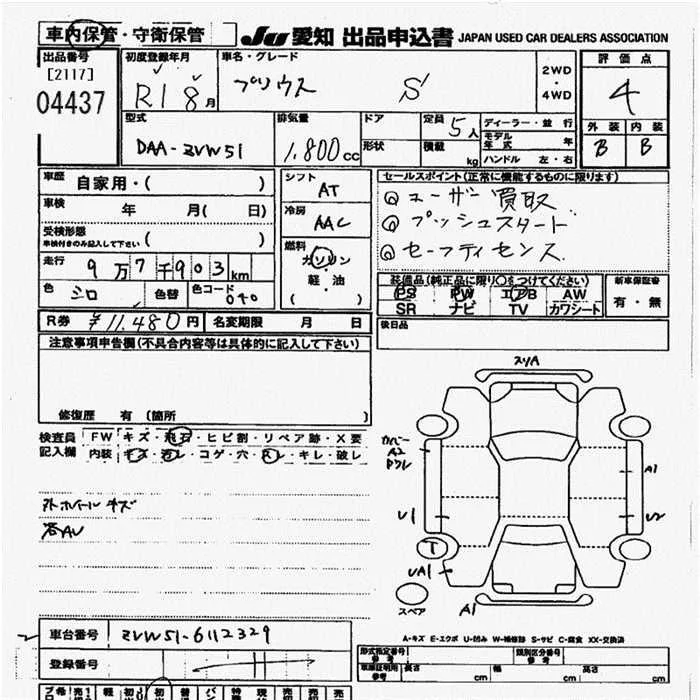 車内保管・守衛保管
JU 愛知 出品申込書 JAPAN USED CAR DEALERS ASSOCIATION
出品番号
[2117]
04437
初度登録年月
R1 8月
車名・グレード
プリウス S
2WD
・
4WD
評価点
4
外装 内装
B B
型式
DAA-ZVW51
排気量
1,800cc
ドア
形状
定員 5人
積載 kg
ディーラー・並行
モデル年式 年
ハンドル 左・右
車歴 自家用・( )
車検 年 月( 日)
受検形態
車検付きのみ記入して下さい ( )
走行 9万7千903km
色 シロ 色替 色コード 040
シフト
AT
冷房
AAC
燃料
ガソリン
軽・油
( )
セールスポイント(正常に機能するものに限ります)
ユーザー買取
プッシュスタート
セーフティセンス
装備品(純正品に限り○をつけてください)
PS PW エアB AW
SR ナビ TV カワシート
新車保証書
有・無
R券 ¥11,480円 名変期限 月 日
後日品
注意事項申告欄(不具合内容等は具体的に記入して下さい)
修復歴 有 (箇所 )
検査員 FW キズ・飛石・ヒビ割・リペア跡・X要
記入欄 内装 キズ・汚レ・コゲ・穴・スレ・キレ・破レ
外ホイールキズ
スリA
カバー
A2
A1
U1
U2
T
UA1
A1
スペア
A-キズ E-エクボ U-凹み W-補修跡 S-サビ C-腐食 XX-交換済
車台番号 ZVW51-6112329
登録番号
型式指定番号
参考
類別区分番号
参考
車庫証明用
参考
長さ cm 幅 cm 高さ cm